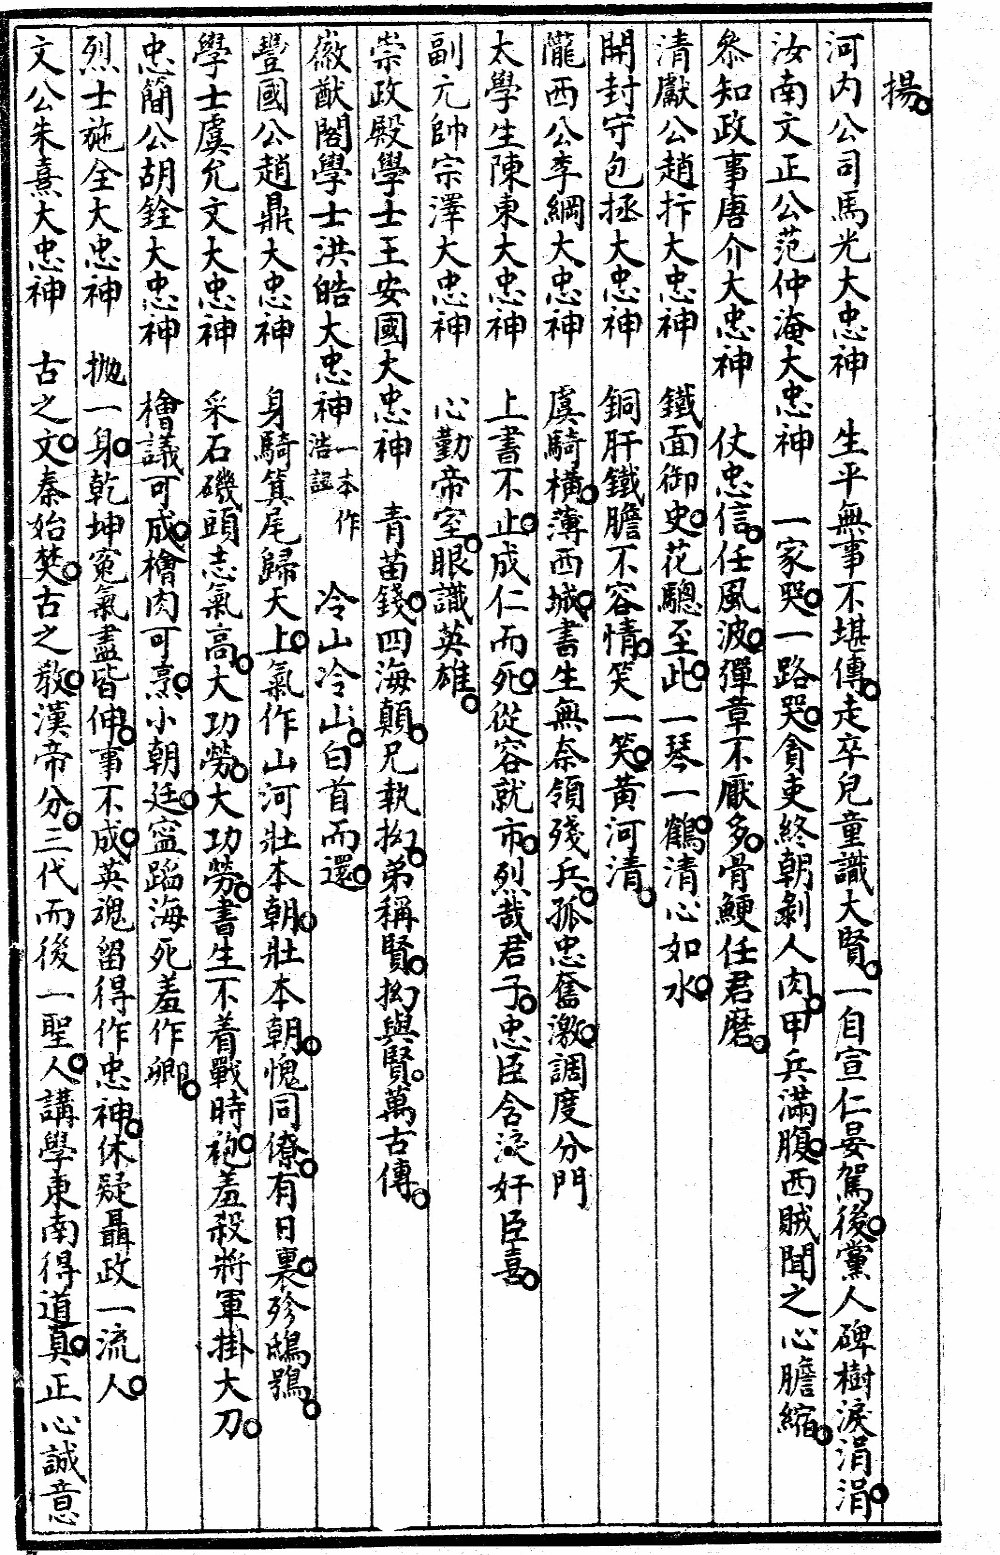 揚。
河內公司馬光大忠神　生平無事不堪傳。走卒兒童識大賢。一自宣仁晏駕後。黨人碑樹淚涓涓。
汝南文正公范仲淹大忠神　一家哭。一路哭。貪吏終朝剝人肉。甲兵滿腹。西賊聞之心膽縮。
叅知政事唐介大忠神　仗忠信。任風波。彈章不厭多。骨鯁任君磨。
清獻公趙抃大忠神　鐵面御史。花驄至此。一琴一鶴。清心如水。
開封守包拯大忠神　銅肝鐵膽不容情。笑一笑。黃河清。
隴西公李綱大忠神　虞騎橫。薄西城。書生無奈領殘兵。孤忠奮激。調度分門
太學生陳東大忠神　上書不止。成仁而死。從容就市。烈哉君子。忠臣含淚奸臣喜。
副元帥宗澤大忠神　心勤帝室。眼識英雄。
崇政殿學士王安國大忠神　青苗錢。四海顛。兄執拗。弟稱賢。拗與賢。萬古傳。
徽猷閣學士洪皓大忠神一本作浩誤　冷山冷山。白首而還。
豐國公趙鼎大忠神　身騎箕尾歸天上。氣作山河壯本朝。壯本朝。愧同僚。有日裏。殄鴟鴞。
學士虞允文大忠神　采石磯頭志氣高。大功勞。大功勞。書生不着戰時袍。羞殺將軍掛大刀。
忠簡公胡銓大忠神　檜議可成。檜肉可烹。小朝廷。寍蹈海死羞作卿。
烈士施全大忠神　拋一身。乾坤寃氣盡皆伸。事不成。英魂留得作忠神。休疑聶政一流人。
文公朱熹大忠神　古之文。秦始焚。古之敎。漢帝分。三代而後一聖人。講學東南得道眞。正心誠意